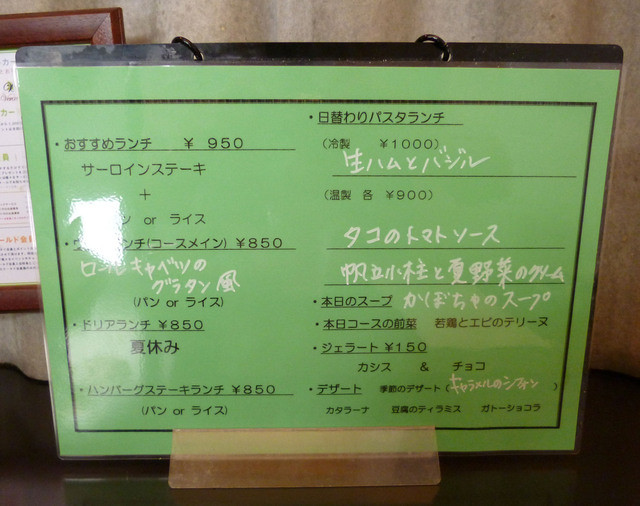 ・おすすめランチ ￥ 950
サーロインステーキ
＋
ン or ライス
ンチ(コースメイン) ￥850
ロールキャベツの
グラタン風
(パン or ライス)
・ドリアランチ ￥850
夏休み
・ハンバーグステーキランチ ￥850
(パン or ライス)
・日替わりパスタランチ
(冷製 ￥1000)
生ハムとバジル
(温製 各 ￥900)
タコのトマトソース
帆立小柱と夏野菜のクリーム
・本日のスープ かぼちゃのスープ
・本日コースの前菜 若鶏とエビのテリーヌ
・ジェラート ￥150
カシス & チョコ
・デザート 季節のデザート (キャラメルのシフォン)
カタラーナ 豆腐のティラミス ガトーショコラ